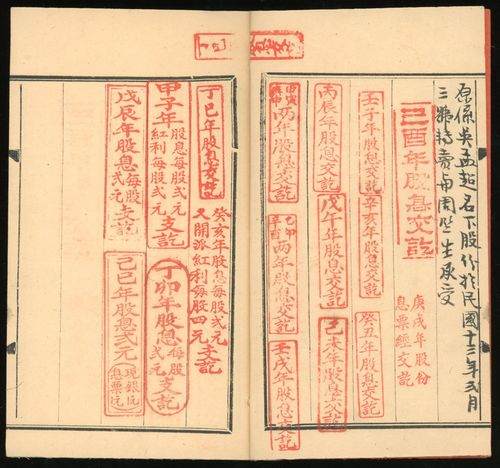 原係吳孟超名下股份於民國十三年弍月
己酉年股息交訖
庚戌年股份
息票經交訖
壬子年股息交訖
辛亥年股息交訖
癸丑年股息交訖
丙辰年股息交訖
戊午年股息交訖
己未年股息交訖
甲寅
兩年股息交訖
乙卯
辛酉
兩年股息交訖
壬戌年股息交訖
丁巳年股息交訖
癸亥年股息每股弍元
又開派紅利每股四元支訖
甲子年股息每股弍元
紅利每股弍元
支訖
丁卯年股息每股弍元支訖
戊辰年股息每股弍元支訖
己巳年股息弍元